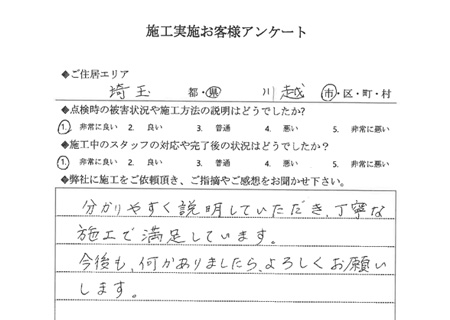 施工実施お客様アンケート
◆ご住居エリア
埼玉 都・県 川越 市・区・町・村
◆点検時の被害状況や施工方法の説明はどうでしたか?
1. 非常に良い 2. 良い 3. 普通 4. 悪い 5. 非常に悪い
◆施工中のスタッフの対応や完了後の状況はどうでしたか?
1. 非常に良い 2. 良い 3. 普通 4. 悪い 5. 非常に悪い
◆弊社に施工をご依頼頂き、ご指摘やご感想をお聞かせ下さい。
分かりやすく説明していただき、丁寧な
施工で満足しています。
今後も、何かありましたら、よろしくお願い
します。